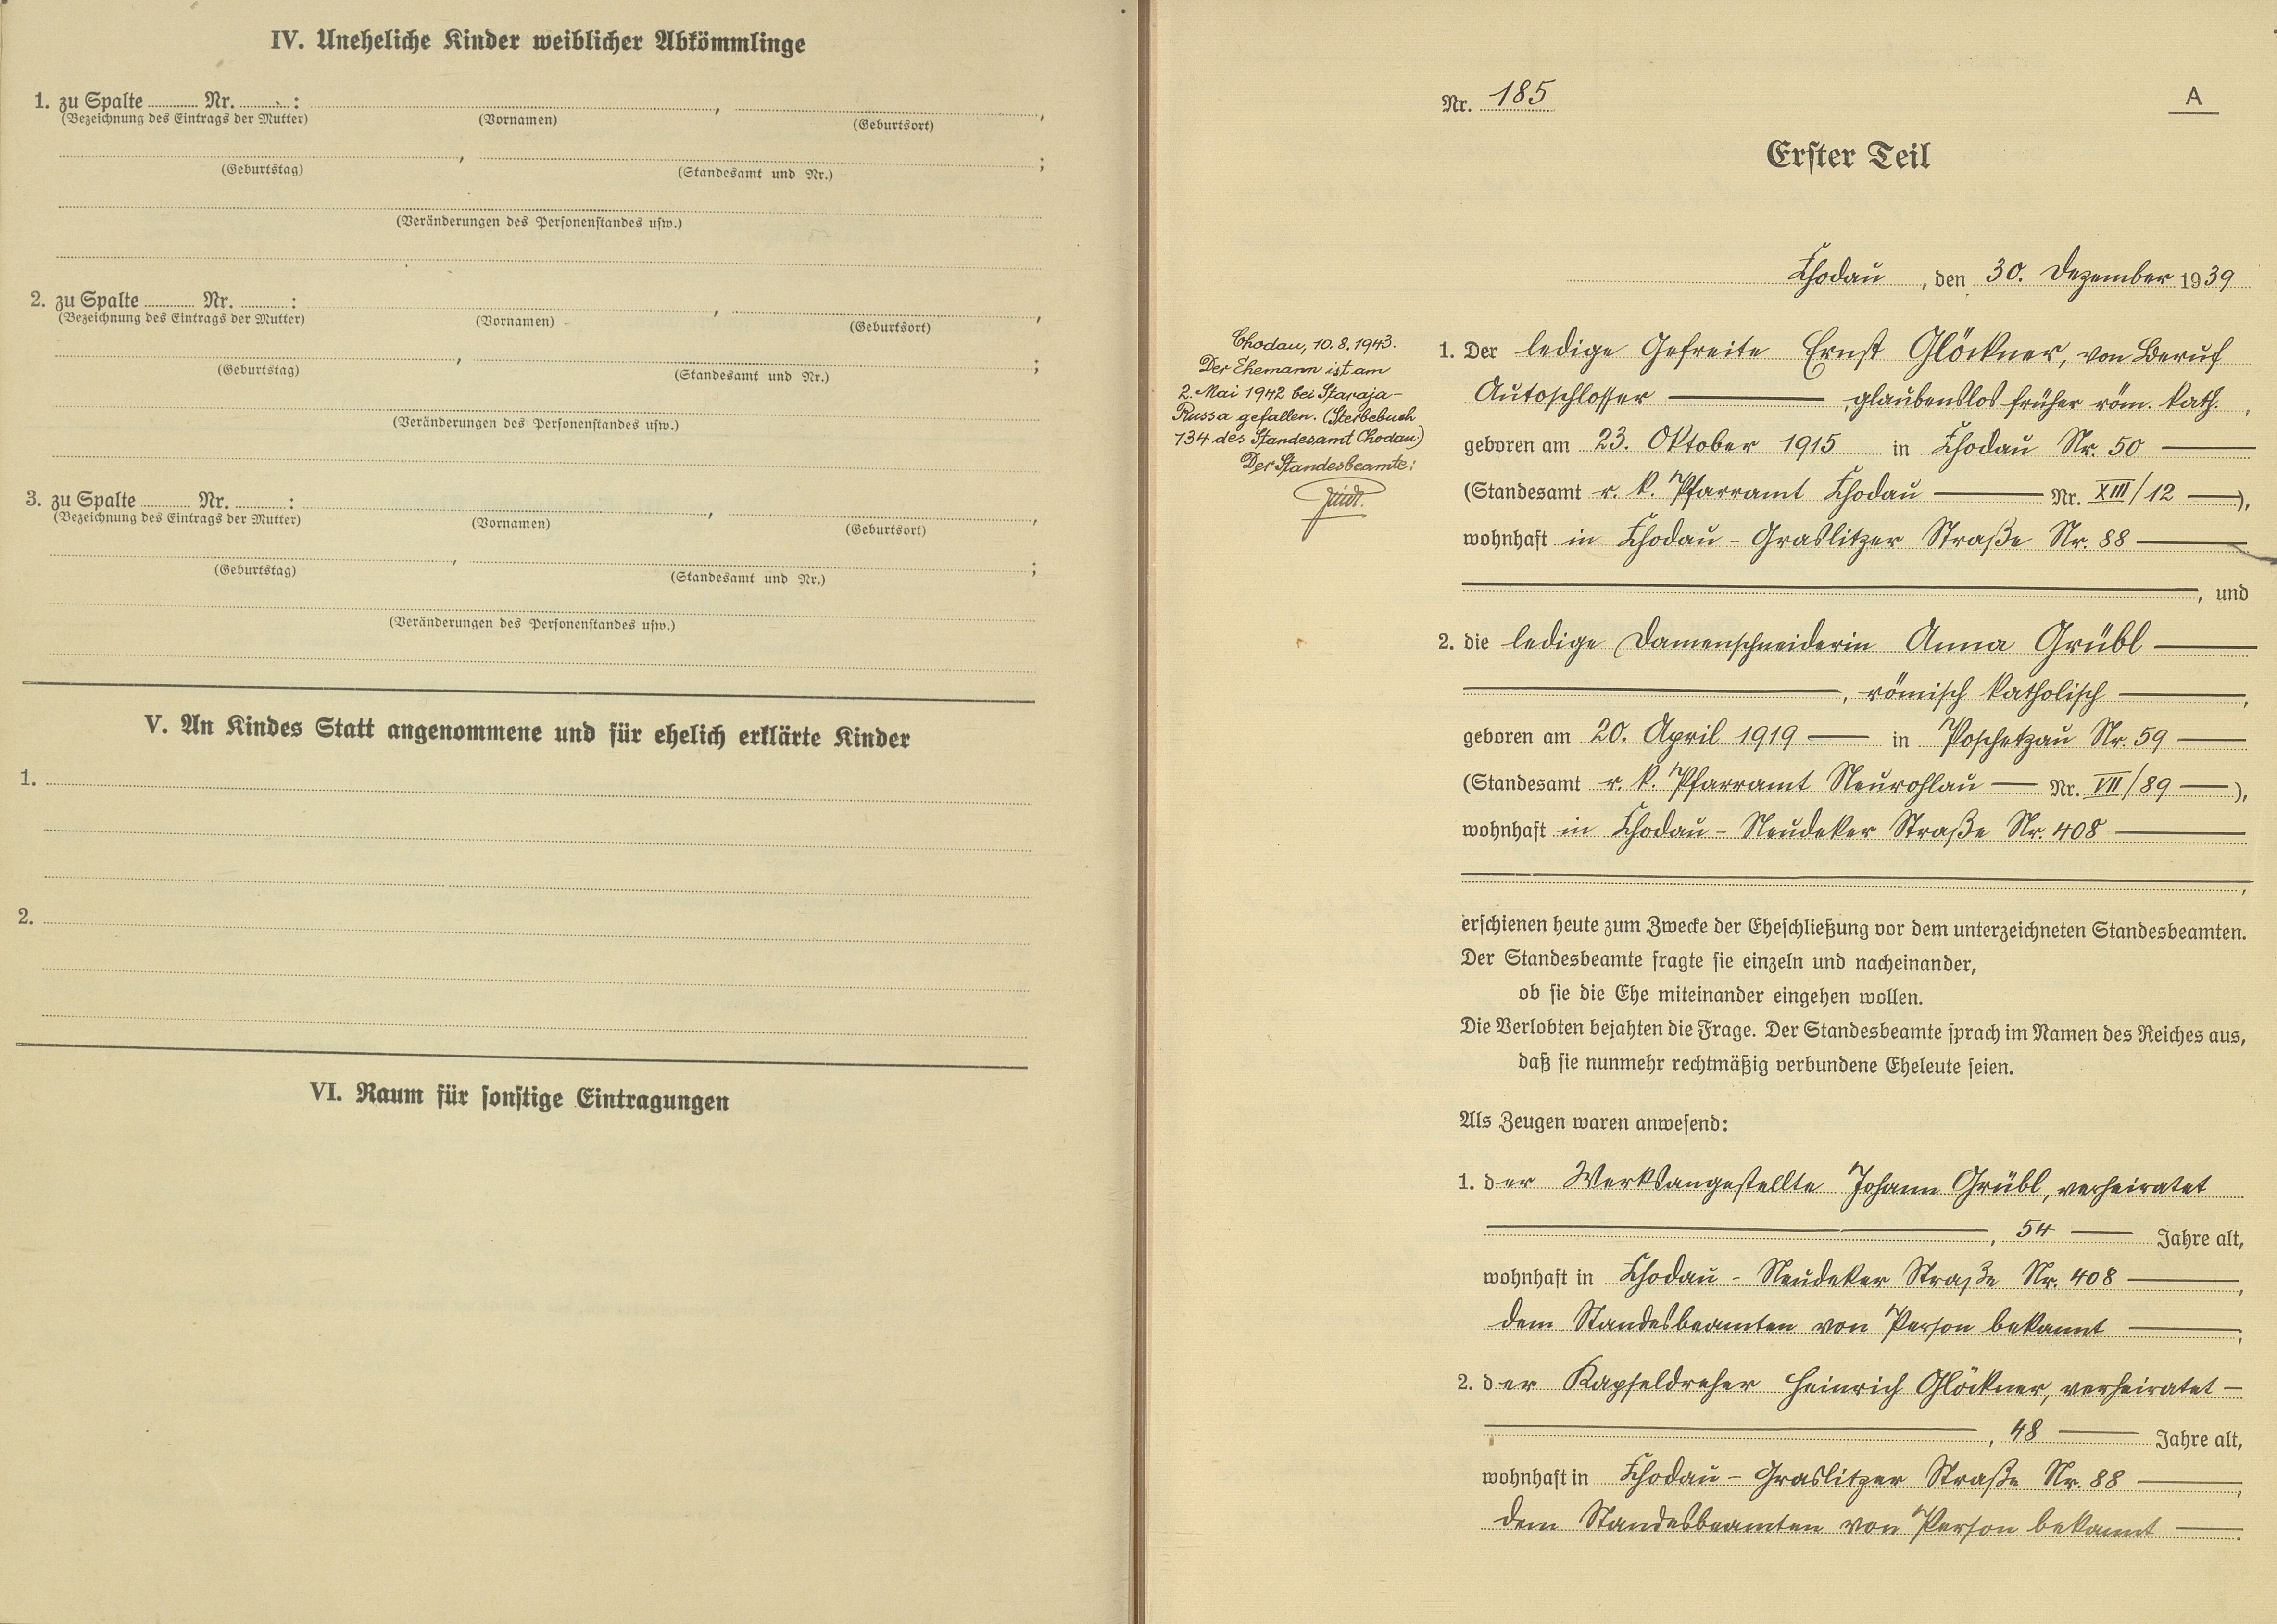 IV. Uneheliche Kinder weiblicher Abkömmlinge
1. zu Spalte ........ Nr. ........ :
(Bezeichnung des Eintrags der Mutter) (Vornamen) , (Geburtsort) ,
(Geburtstag) , (Standesamt und Nr.) ;
(Veränderungen des Personenstandes usw.)
2. zu Spalte ........ Nr. ........ :
(Bezeichnung des Eintrags der Mutter) (Vornamen) , (Geburtsort) ,
(Geburtstag) , (Standesamt und Nr.) ;
(Veränderungen des Personenstandes usw.)
3. zu Spalte ........ Nr. ........ :
(Bezeichnung des Eintrags der Mutter) (Vornamen) , (Geburtsort) ,
(Geburtstag) , (Standesamt und Nr.) ;
(Veränderungen des Personenstandes usw.)
V. An Kindes Statt angenommene und für ehelich erklärte Kinder
1.
2.
VI. Raum für sonstige Eintragungen
Nr. 185
A
Erster Teil
Chodau, den 30. Dezember 1939
Chodau, 10.8.1943.
Der Ehemann ist am
2. Mai 1942 bei Staraja-
Russa gefallen. (Sterbebuch
134 des Standesamt Chodau)
Der Standesbeamte:
1. Der ledige Gefreite Ernst Glöckner, von Beruf
Autoschlosser ——— , glaubenslos früher röm. kath. ,
geboren am 23. Oktober 1915 in Chodau Nr. 50 ———
(Standesamt r. k. Pfarramt Chodau ——— Nr. XIII/12 —),
wohnhaft in Chodau - Graslitzer Straße Nr. 88 ———
———, und
2. die ledige Damenschneiderin Anna Grübl ———
———, römisch katholisch ———,
geboren am 20. April 1919 — in Poschetzau Nr. 59 ———
(Standesamt r. k. Pfarramt Neurohlau — Nr. VII/89 —),
wohnhaft in Chodau - Neudeker Straße Nr. 408 ———
———,
erschienen heute zum Zwecke der Eheschließung vor dem unterzeichneten Standesbeamten.
Der Standesbeamte fragte sie einzeln und nacheinander,
ob sie die Ehe miteinander eingehen wollen.
Die Verlobten bejahten die Frage. Der Standesbeamte sprach im Namen des Reiches aus,
daß sie nunmehr rechtmäßig verbundene Eheleute seien.
Als Zeugen waren anwesend:
1. der Werksangestellte Johann Grübl, verheiratet
———, 54 — Jahre alt,
wohnhaft in Chodau - Neudeker Straße Nr. 408 ———,
dem Standesbeamten von Person bekannt ———;
2. der Kapseldreher Heinrich Glöckner, verheiratet —
———, 48 — Jahre alt,
wohnhaft in Chodau - Graslitzer Straße Nr. 88 ———,
dem Standesbeamten von Person bekannt ———.